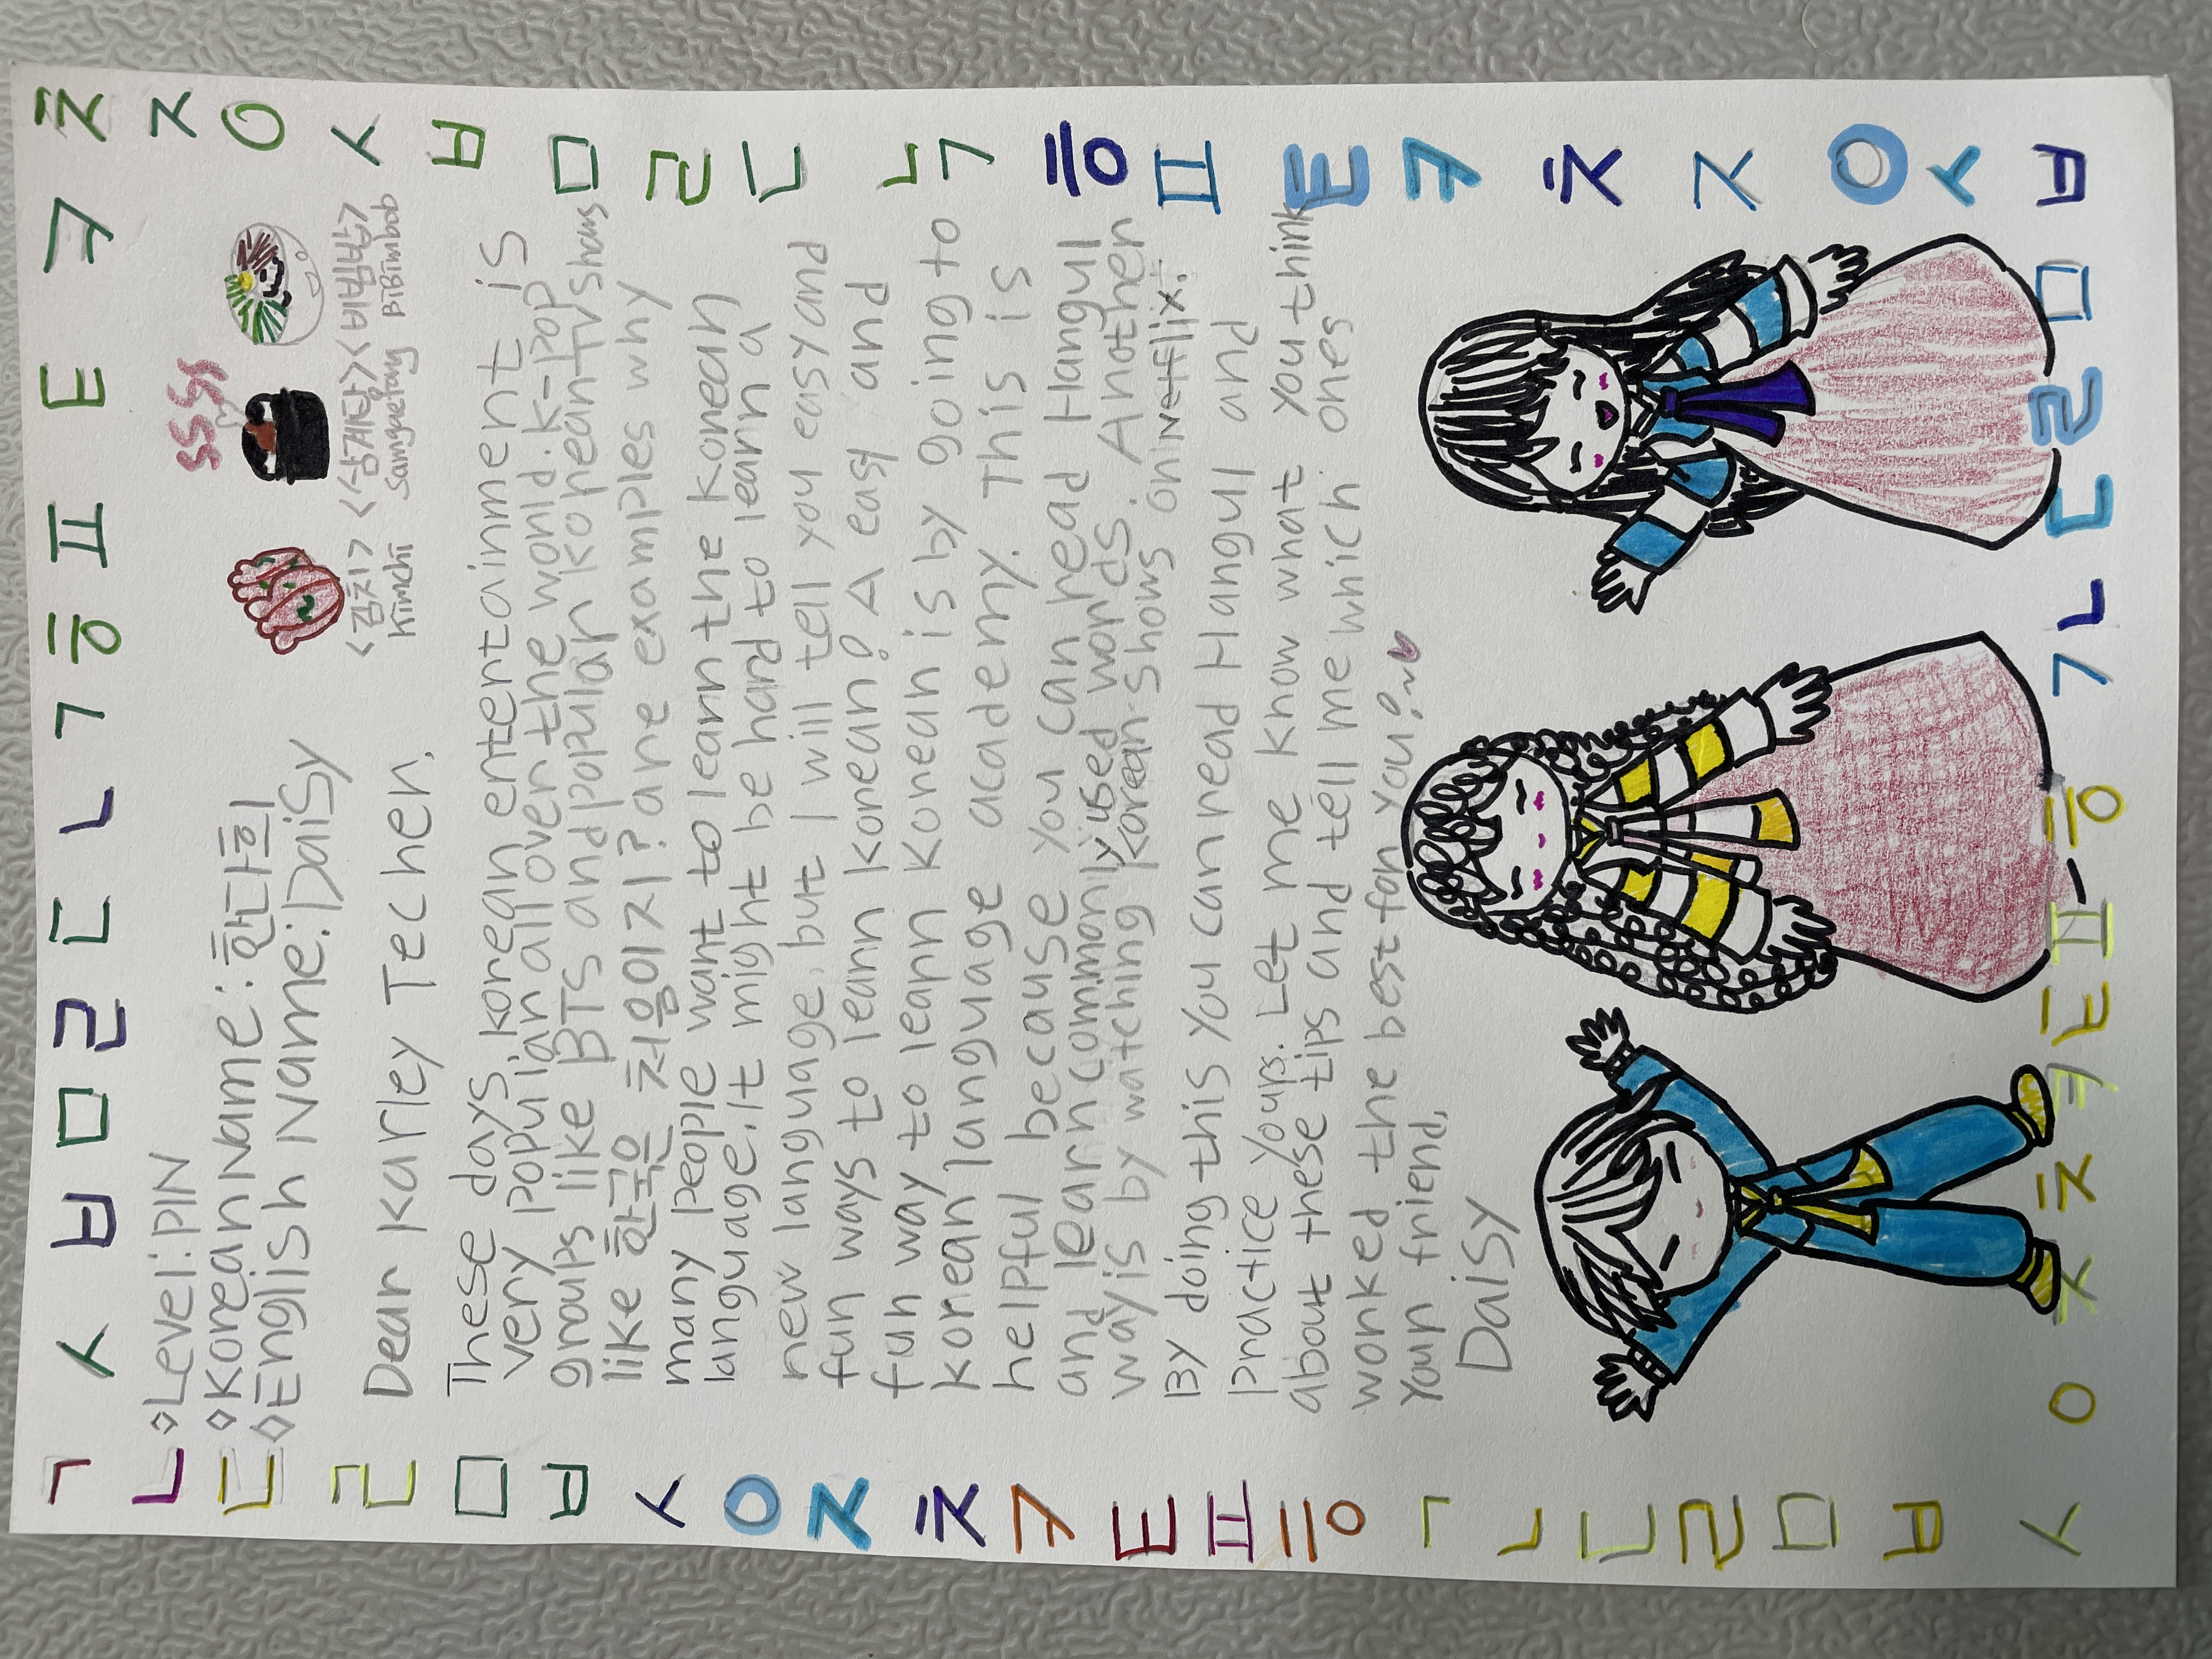 ㄱ ㅅ ㅂ ㅁ ㄹ ㄷ ㄴ ㄱ ㅎ ㅍ ㅌ ㅋ ㅊ
◇Level:PIN
◇Korean Name:한다희
◇English Name:Daisy
SSSS
<김치> <삼계탕> <비빔밥>
Kimchi Samguetang BiBimbab
Dear Karley Techer,
These days, korean entertainment is
very popular all over the world. k-pop
groups like BTS and popular korean tv shows
like 한국은 처음이지? are examples why
many people want to learn the korean
language. It might be hard to learn a
new language, but I will tell you easy and
fun ways to learn korean! A easy and
fun way to learn Korean is by going to
korean language academy. This is
helpful because you can read Hangul
and learn commonly used words. Another
way is by watching korean shows on Netflix.
By doing this you can read Hangul and
practice yours. Let me know what you think
about these tips and tell me which ones
worked the best for you?~
Your friend,
Daisy
ㄱ
ㄴ
ㄷ
ㄹ
ㅁ
ㅂ
ㅅ
ㅇ
ㅈ
ㅊ
ㅋ
ㅌ
ㅍ
ㅎ
ㄱ
ㄴ
ㄷ
ㄹ
ㅁ
ㅂ
ㅅ
ㅈ
ㅇ
ㅅ
ㅂ
ㅁ
ㄹ
ㄷ
ㄴ
ㄱ
ㅎ
ㅍ
ㅌ
ㅋ
ㅊ
ㅈ
ㅇ
ㅅ
ㅂ
ㅇ ㅈ ㅊ ㅋ ㅌ ㅍ ㅎ ㄱ ㄴ ㄷ ㄹ ㅁ